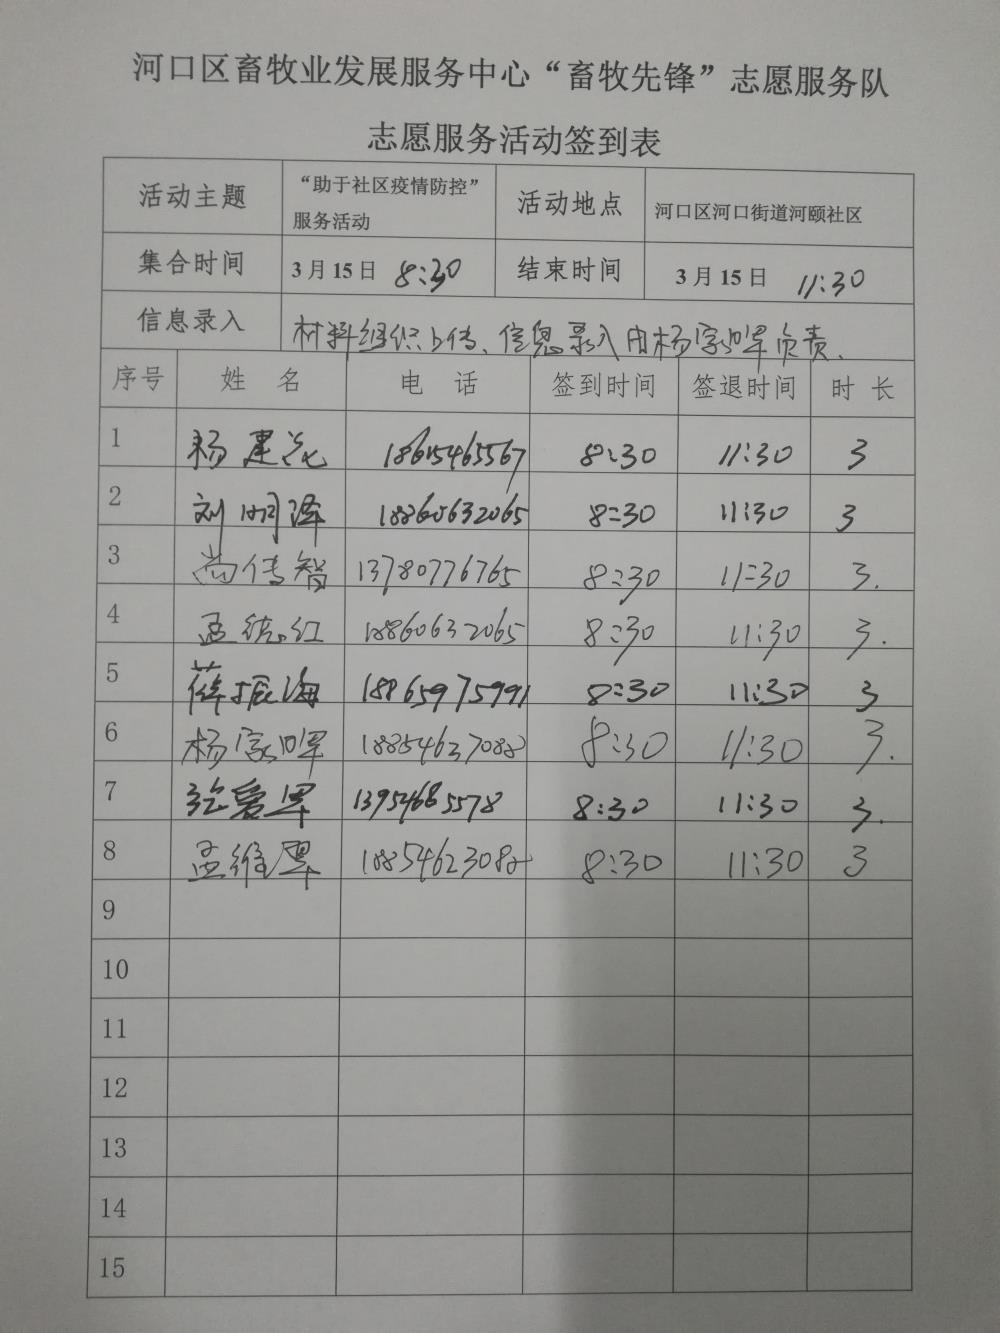 河口区畜牧业发展服务中心“畜牧先锋”志愿服务队
志愿服务活动签到表
活动主题 “助于社区疫情防控”服务活动 活动地点 河口区河口街道河颐社区
集合时间 3月15日 8:30 结束时间 3月15日 11:30
信息录入 材料组织上传、信息录入由杨家晖负责、
序号 姓 名 电 话 签到时间 签退时间 时 长
1 杨建花 18615465567 8:30 11:30 3
2 刘明泽 18860632065 8:30 11:30 3
3 尚传智 13780776765 8:30 11:30 3.
4 孟统红 18860632065 8:30 11:30 3.
5 薛振海 18865975991 8:30 11:30 3
6 杨家晖 18854627088 8:30 11:30 3.
7 13954685578 8:30 11:30 3.
8 孟维 18854623082 8:30 11:30 3
9
10
11
12
13
14
15